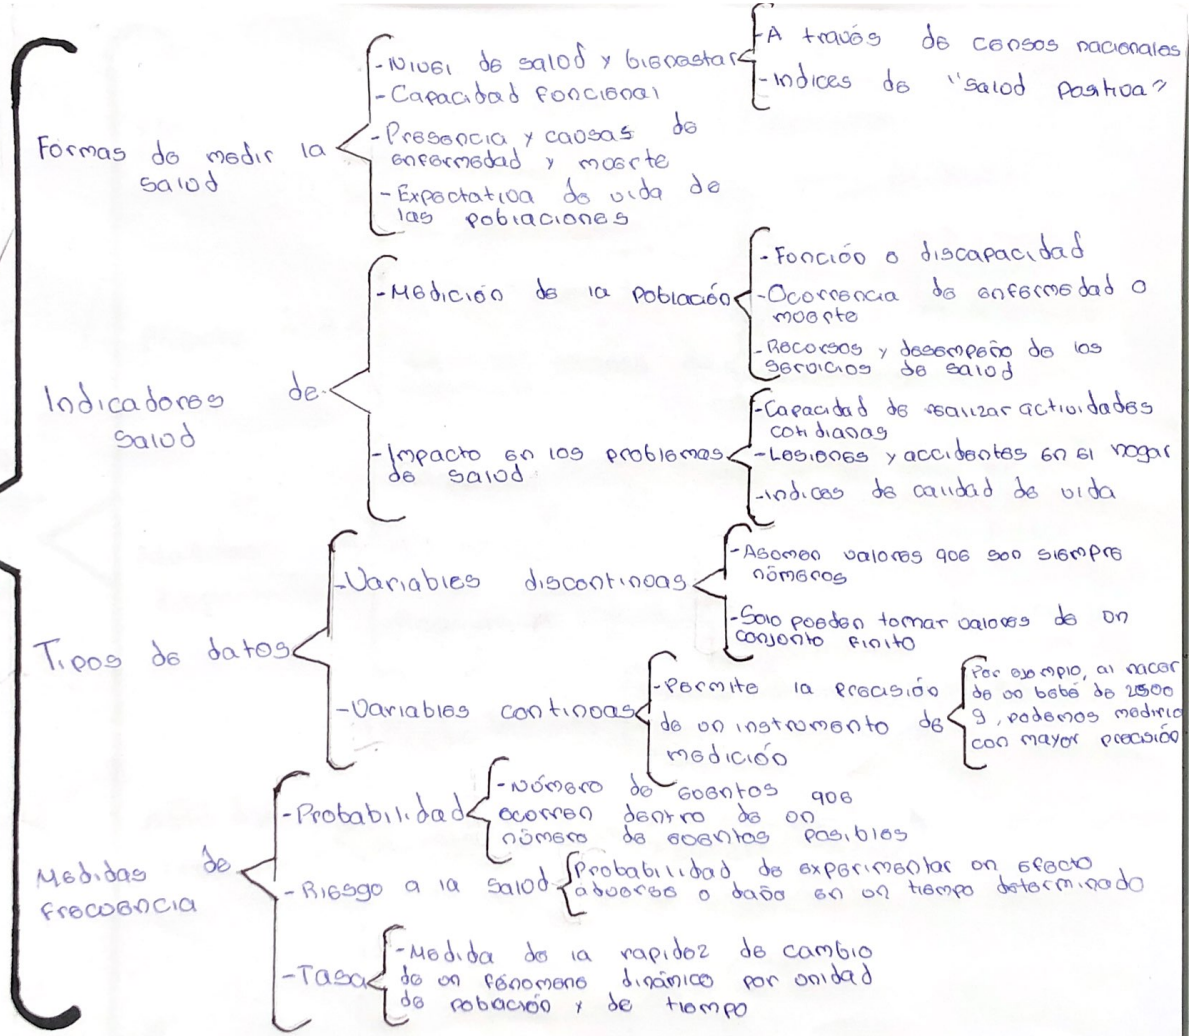 Formas de medir la
salud
-Nivel de salud y bienestar
-Capacidad funcional
-Presencia y causas de
enfermedad y muerte
-Expectativa de vida de
las poblaciones
-A través de censos nacionales
-Indices de "salud positiva"
Indicadores de
salud
-Medición de la población
-Función o discapacidad
-Ocurrencia de enfermedad o
muerte
-Recursos y desempeño de los
servicios de salud
-Impacto en los problemas
de salud
-Capacidad de realizar actividades
cotidianas
-Lesiones y accidentes en el hogar
-Indices de calidad de vida
Tipos de datos
-Variables discontinuas
-Asumen valores que son siempre
números
-Solo pueden tomar valores de un
conjunto finito
-Variables continuas
-Permite la precisión
de un instrumento de
medición
Por ejemplo, al nacer
de un bebé de 2500
g, podemos medirlo
con mayor precisión
Medidas de
frecuencia
-Probabilidad
-Número de eventos que
ocurren dentro de un
número de eventos posibles
-Riesgo a la salud
Probabilidad de experimentar un efecto
adverso o daño en un tiempo determinado
-Tasa
-Medida de la rapidez de cambio
de un fénomeno dinámico por unidad
de población y de tiempo